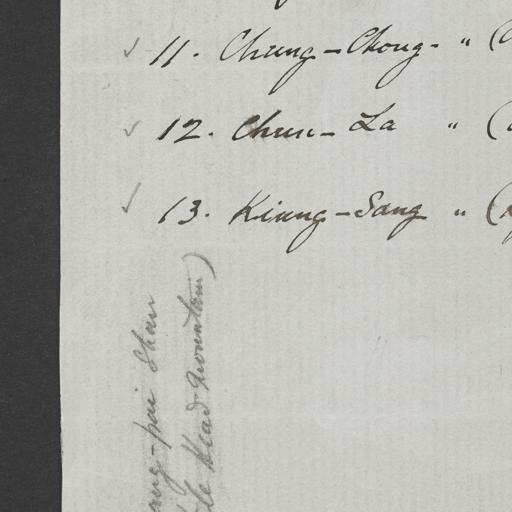 11. Chung-Chong- " (
12. Chun-La " (
13. Kiung-Sang " (
ang-pai Shan
Head Mountain)